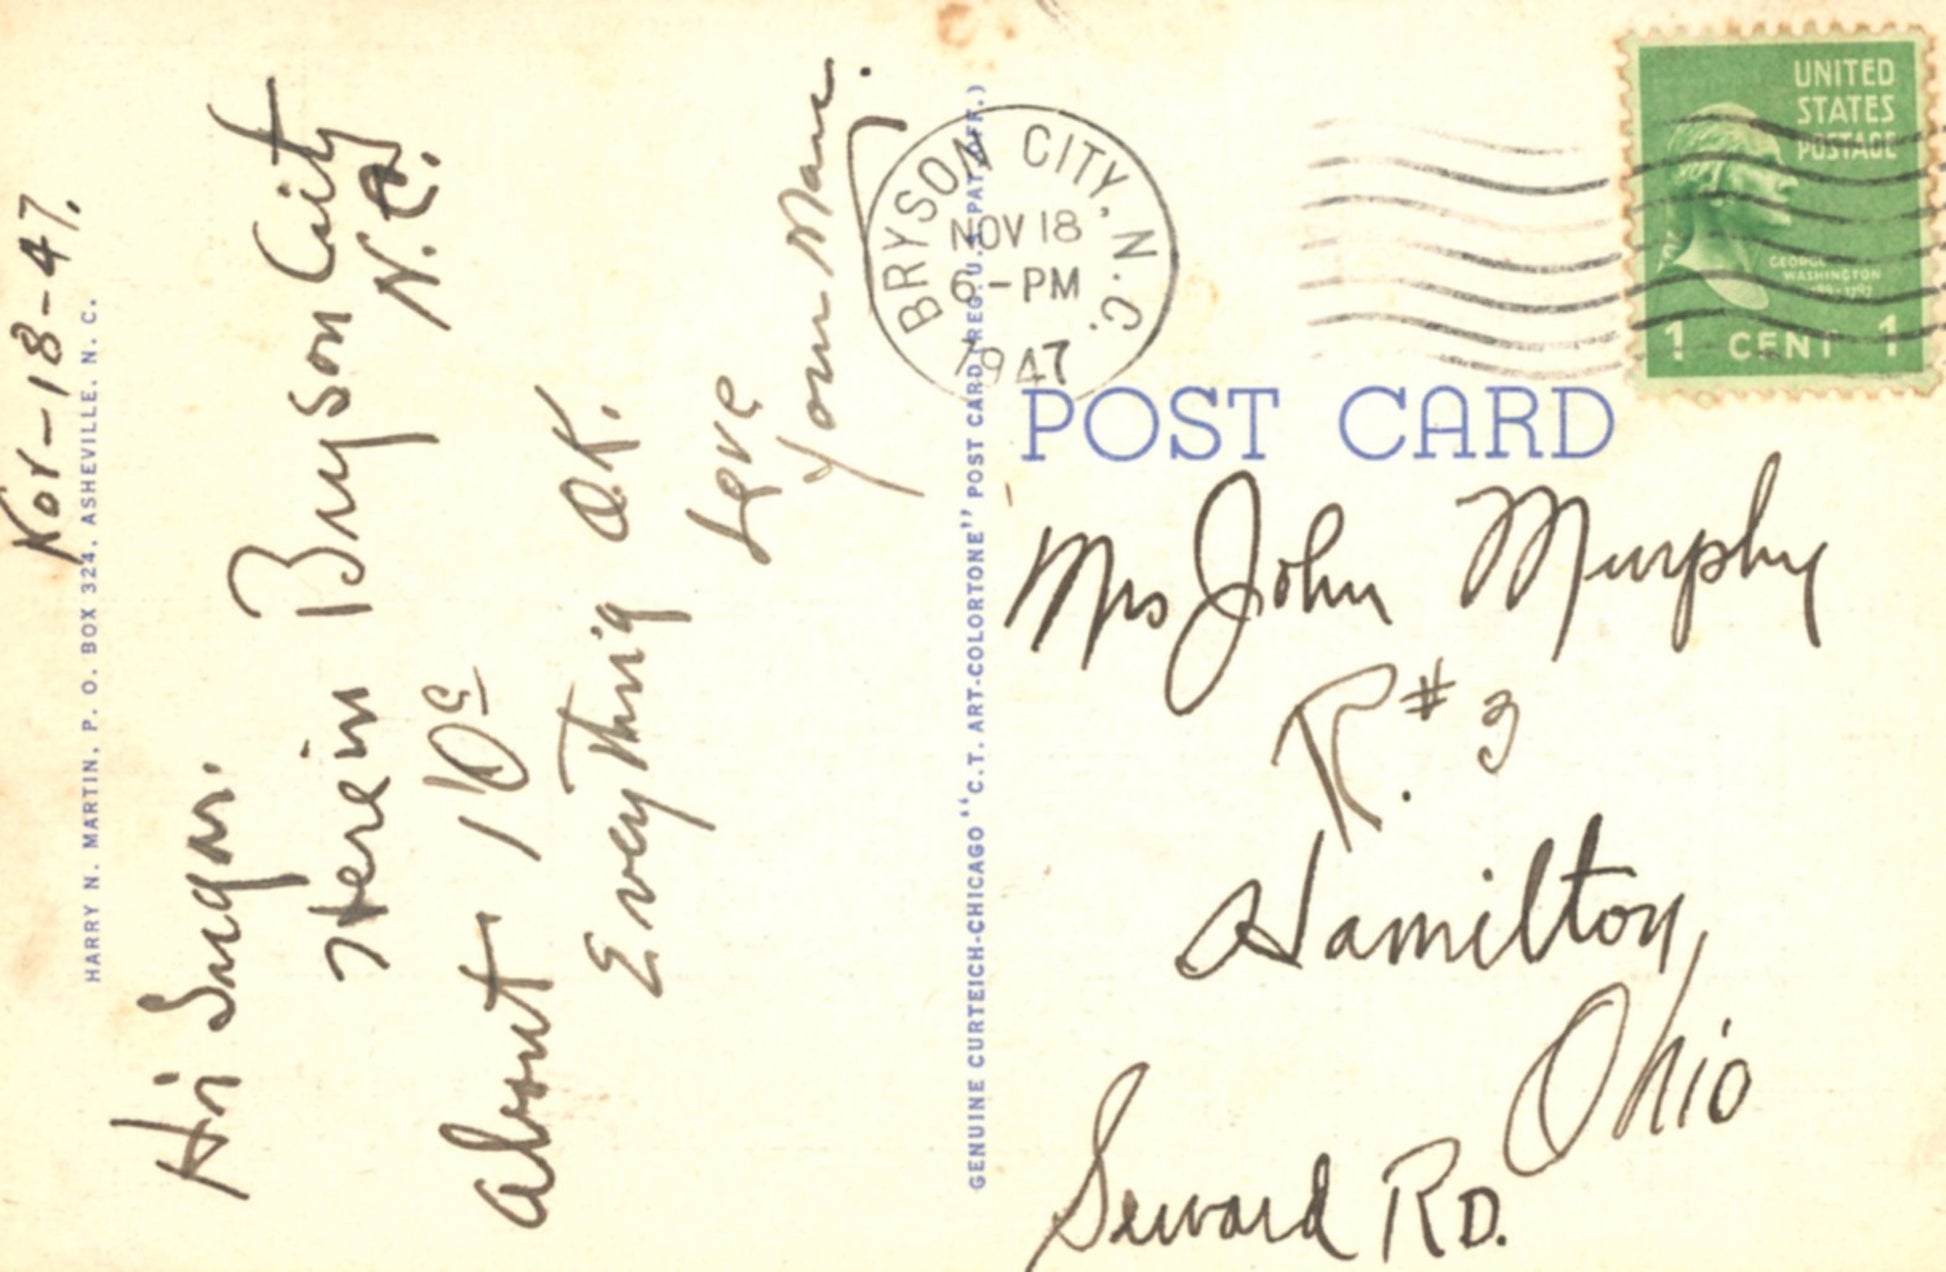 Nov-18-47.
HARRY N. MARTIN, P. O. BOX 324, ASHEVILLE, N. C.
Hi Sugar.
Here in Bryson City
N.C.
about
EveryThing O.K.
Love
Your Man.
GENUINE CURTEICH-CHICAGO "C.T. ART-COLORTONE" POST CARD (REG. U.S. PAT. OFF.)
BRYSON CITY, N.C.
NOV 18
6-PM
1947
UNITED
STATES
POSTAGE
GEORGE
WASHINGTON
1 CENT 1
POST CARD
Mrs John Murphy
R.#3
Hamilton,
Ohio
Seward RD.